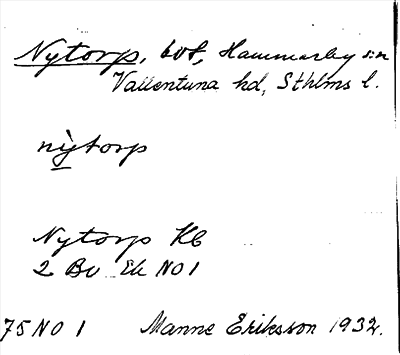 Nytorp, bot, Hammarby sn
Vallentuna hd, Sthlms l.
nỳtorp
Nytorp Kb
2 Bv Ek NO 1
75 NO 1 Manne Eriksson 1932.